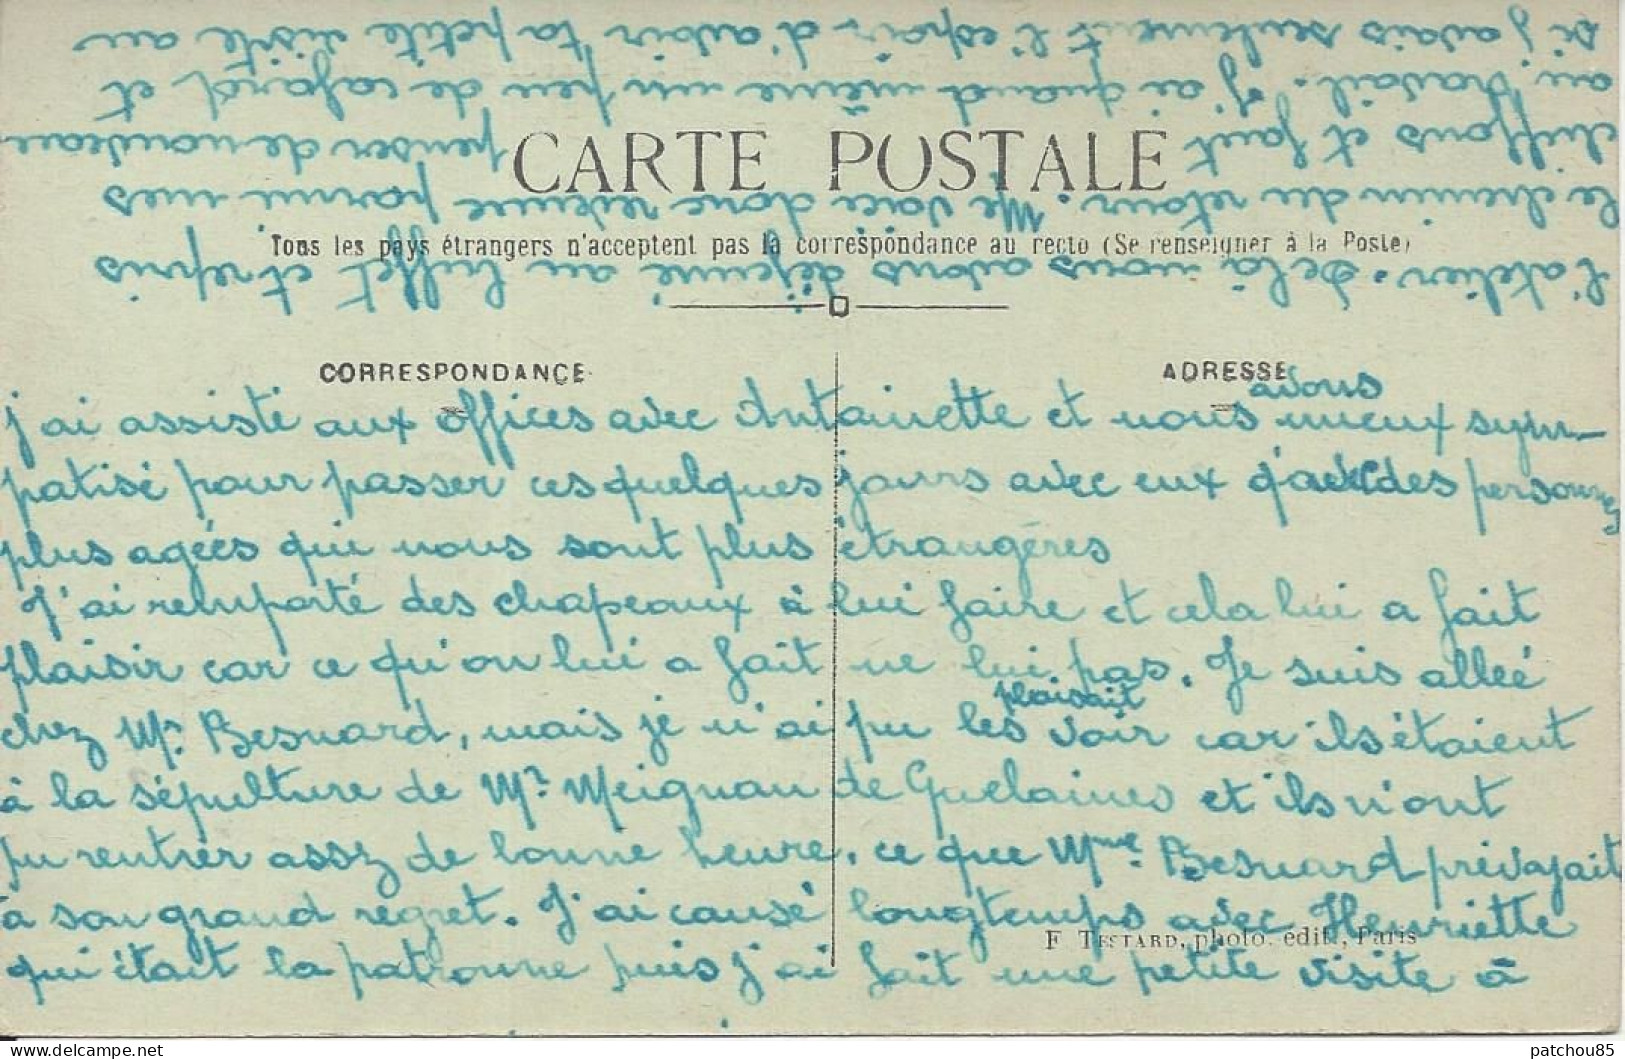 CARTE POSTALE
Tous les pays étrangers n'acceptent pas la correspondance au recto (Se renseigner à la Poste)
CORRESPONDANCE
ADRESSE
avons
j'ai assisté aux offices avec Antainette et nous mieux sym-
patisé pour passer ces quelques jours avec eux q'avec des personnes
plus agées qui nous sont plus étrangères
J'ai remporté des chapeaux à lui faire et cela lui a fait
plaisir car ce qu'on lui a fait ne lui pas. Je suis alleé
plaisait
chez Mr Besnard, mais je n'ai pu les voir car ils étaient
à la sépulture de Mr Meignan de Quelaines et ils n'ont
pu rentrer assz de bonne heure, ce que Mme Besnard prévoyait
à son grand regret. J'ai causé longtemps avec Henriette
qui était la patronne puis j'ai fait une petite visite à
F TESTARD, photo. édit., Paris
l'atelier. De là nous avons déjeuné au buffet et repris
le chemin du retour. Me voici donc revenue parmi mes
chiffons et fait penser de nouveau
au travail. J'ai quand même un peu de cafard et
si j'avais seulement l'espoir d'avoir ta petite visite au
patchou85